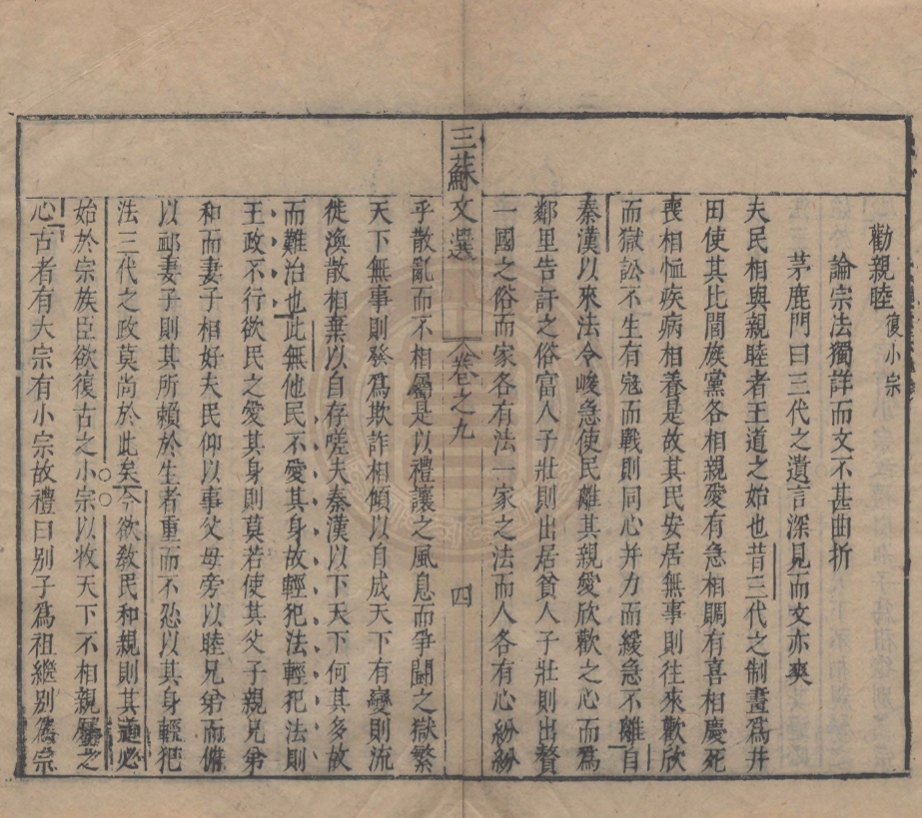 勸親睦復小宗
論宗法獨詳而文不甚曲折
茅鹿門曰三代之遺言深見而文亦爽
夫民相與親睦者王道之始也昔三代之制畫爲井
田使其比閭族黨各相親愛有急相賙有喜相慶死
喪相恤疾病相養是故其民安居無事則往來歡欣
而獄訟不生有寇而戰則同心并力而緩急不離自
秦漢以來法令峻急使民離其親愛欣歡之心而爲
鄰里告訐之俗富人子壯則出居貧人子壯則出贅
一國之俗而家各有法一家之法而人各有心紛紛
三蘇文選 卷之九 四
乎散亂而不相屬是以禮讓之風息而爭鬪之獄繁
天下無事則務爲欺詐相傾以自成天下有變則流
徙渙散相棄以自存嗟夫秦漢以下天下何其多故
而難治也此無他民不愛其身故輕犯法輕犯法則
王政不行欲民之愛其身則莫若使其父子親兄弟
和而妻子相好夫民仰以事父母旁以睦兄弟而俯
以䘏妻子則其所賴於生者重而不忍以其身輕犯
法三代之政莫尚於此矣今欲敎民和親則其道必
始於宗族臣欲復古之小宗以收天下不相親屬之
心古者有大宗有小宗故禮曰別子爲祖繼別爲宗